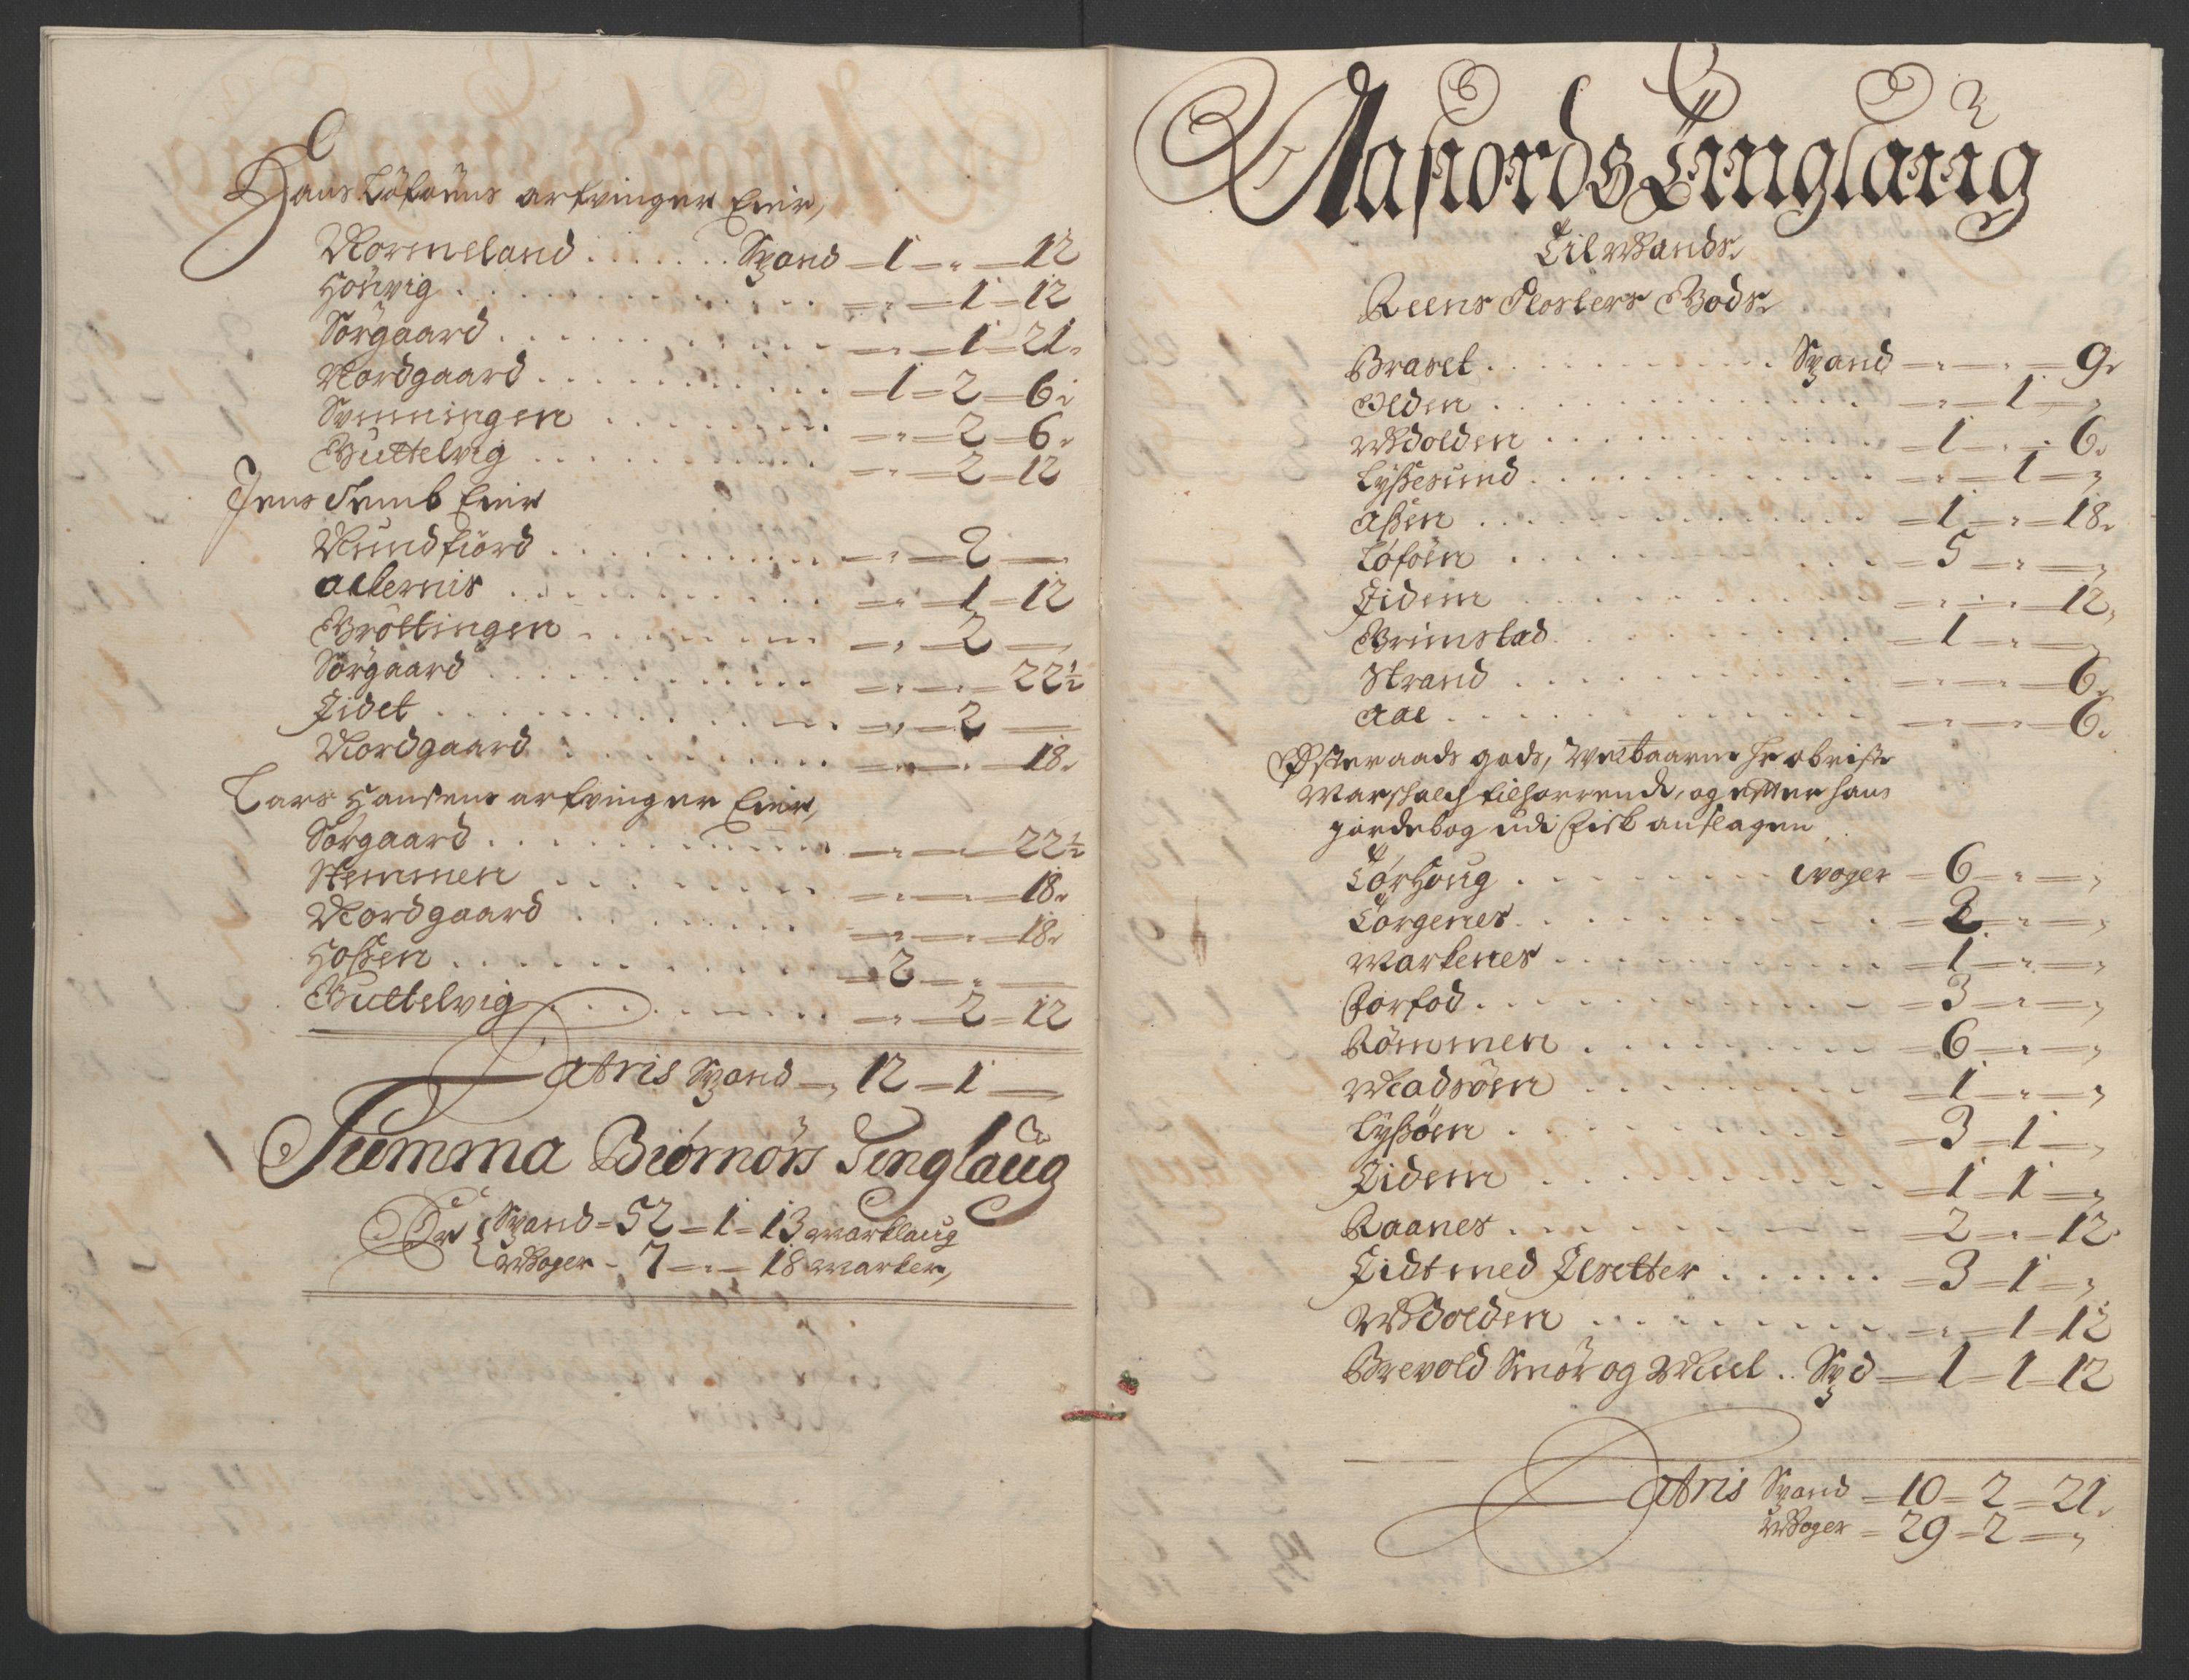 Hans Löföens arfvinger Eier,
Normeland . . . . . . . Spand – 1 – „ – 12
Houvig . . . . . . . . – „ – 1 – 12
Sörgaard . . . . . . . – „ – 1 – 21
Nordgaard . . . . . . . – 1 – 2 – 6
Svenningen . . . . . . – „ – 2 – 6
Guttelvig . . . . . . . – „ – 2 – 12
Jens Semb Eier
Mundfiörd . . . . . . . – „ – 2 –
Allernis . . . . . . . – „ – 1 – 12
Gröttingen . . . . . . – „ – 2 –
Sörgaard . . . . . . . – „ – „ – 22½
Eidet . . . . . . . . – „ – 2 –
Nordgaard . . . . . . . – „ – „ – 18
Lars Hansens arfvinger Eier,
Sörgaard . . . . . . . – „ – „ – 22½
Stemmen . . . . . . . – „ – „ – 18
Nordgaard . . . . . . . – „ – „ – 18
Hoßen . . . . . . . . – 2 – „ –
Guttelvig . . . . . . . – „ – 2 – 12
Latris Spand – 12 – 1 –
Summa Biörnörs Tinglaug
Er { Spand – 52 – 1 – 13 marklaug
Woger – 7 – „ – 18 marker,
Aafiords Tinglaug
Til Wands
Reens Closters Gods
Braset . . . . . . . Spand – „ – „ – 9
Olden . . . . . . . . – „ – 1 – „
Udolden . . . . . . . – 1 – „ – 6
Lyßesund . . . . . . . – „ – 1 – „
Aßen . . . . . . . . – 1 – „ – 18
Löföen . . . . . . . – 5 – „ – „
Eidem . . . . . . . . – „ – „ – 12
Grimstad . . . . . . . – 1 – „ – „
Strand . . . . . . . – „ – „ – 6
Aae . . . . . . . . – „ – „ – 6
Østeraads gods, Welbaarne Hr obriste
Marschalch tilhörrende, og efter hans
jordebog udi Fisk anslagen
Törhoug . . . . . . . woger – 6 – „ – „
Törgenes . . . . . . . – 2 – „ – „
Markenes . . . . . . . – 1 – „ – „
Forfod . . . . . . . – 3 – „ – „
Römmen . . . . . . . – 6 – „ – „
Madsöen . . . . . . . – 1 – „ – „
Lyßöen . . . . . . . – 3 – 1 – „
Eidem . . . . . . . . – 1 – 1 – „
Raanes . . . . . . . – 2 – „ – 12
Eidt med Elsetter . . . . . . – 3 – 1 – „
Udolden . . . . . . . – „ – 1 – 12
Brevold Smör og Meel . . Spd – 1 – 1 – 12
Latris Spand – 10 – 2 – 21
Woger – 29 – 2 – „